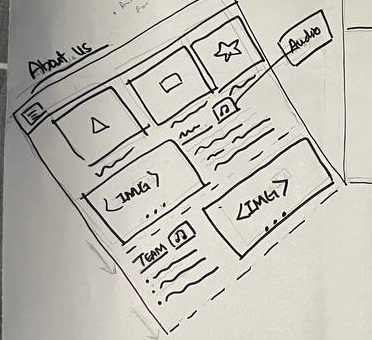 About Us
Audio
<IMG>
<IMG>
TEAM